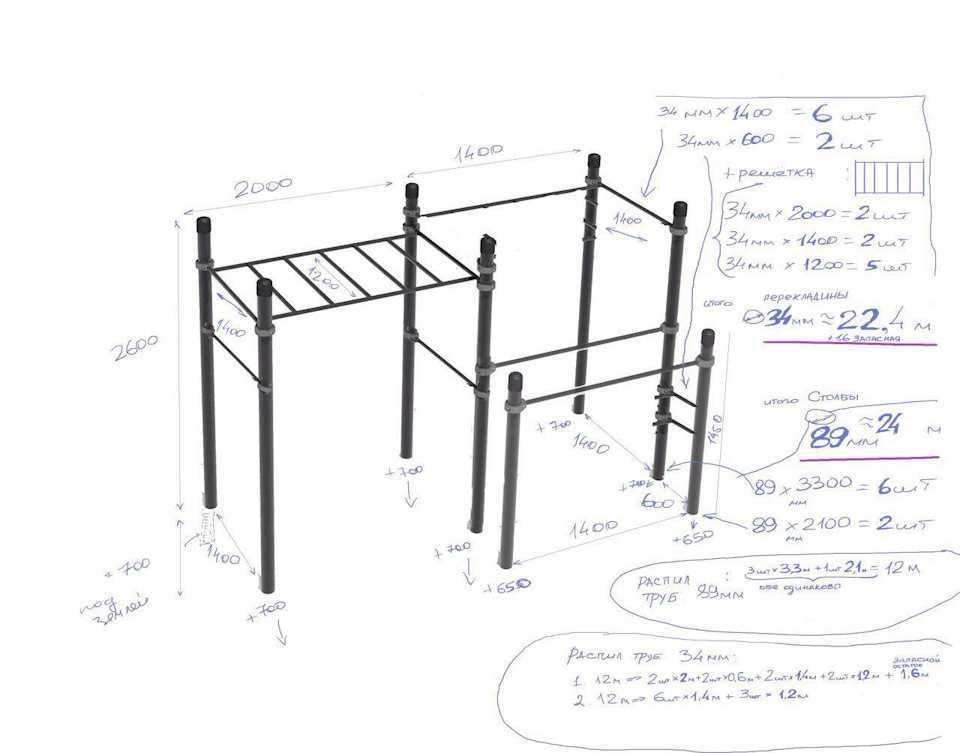 34 мм × 1400 = 6 шт
34мм × 600 = 2 шт
+ решётка :
34мм × 2000 = 2 шт
34мм × 1400 = 2 шт
34мм × 1200 = 5 шт
итого перекладины
⌀34мм ≈ 22,4 м
+ 1.6 запасная
итого Столбы
89мм ≈ 24 м
89 × 3300 = 6 шт
мм
89 × 2100 = 2 шт
мм
Распил труб 89мм : 3шт×3,3м + 1шт 2,1м = 12 м
обе одинаково
Распил труб 34мм:
запасной остаток
1. 12м => 2шт×2м+2шт×0,6м+2шт×1,4м+2шт×1,2м + 1,6м
2. 12м => 6шт×1,4м + 3шт × 1,2м
2000
1400
1400
1200
1400
2600
1950
+700
1400
+700
+700
600
1400
+700
+650
+650
1400
+700
под землей
+700